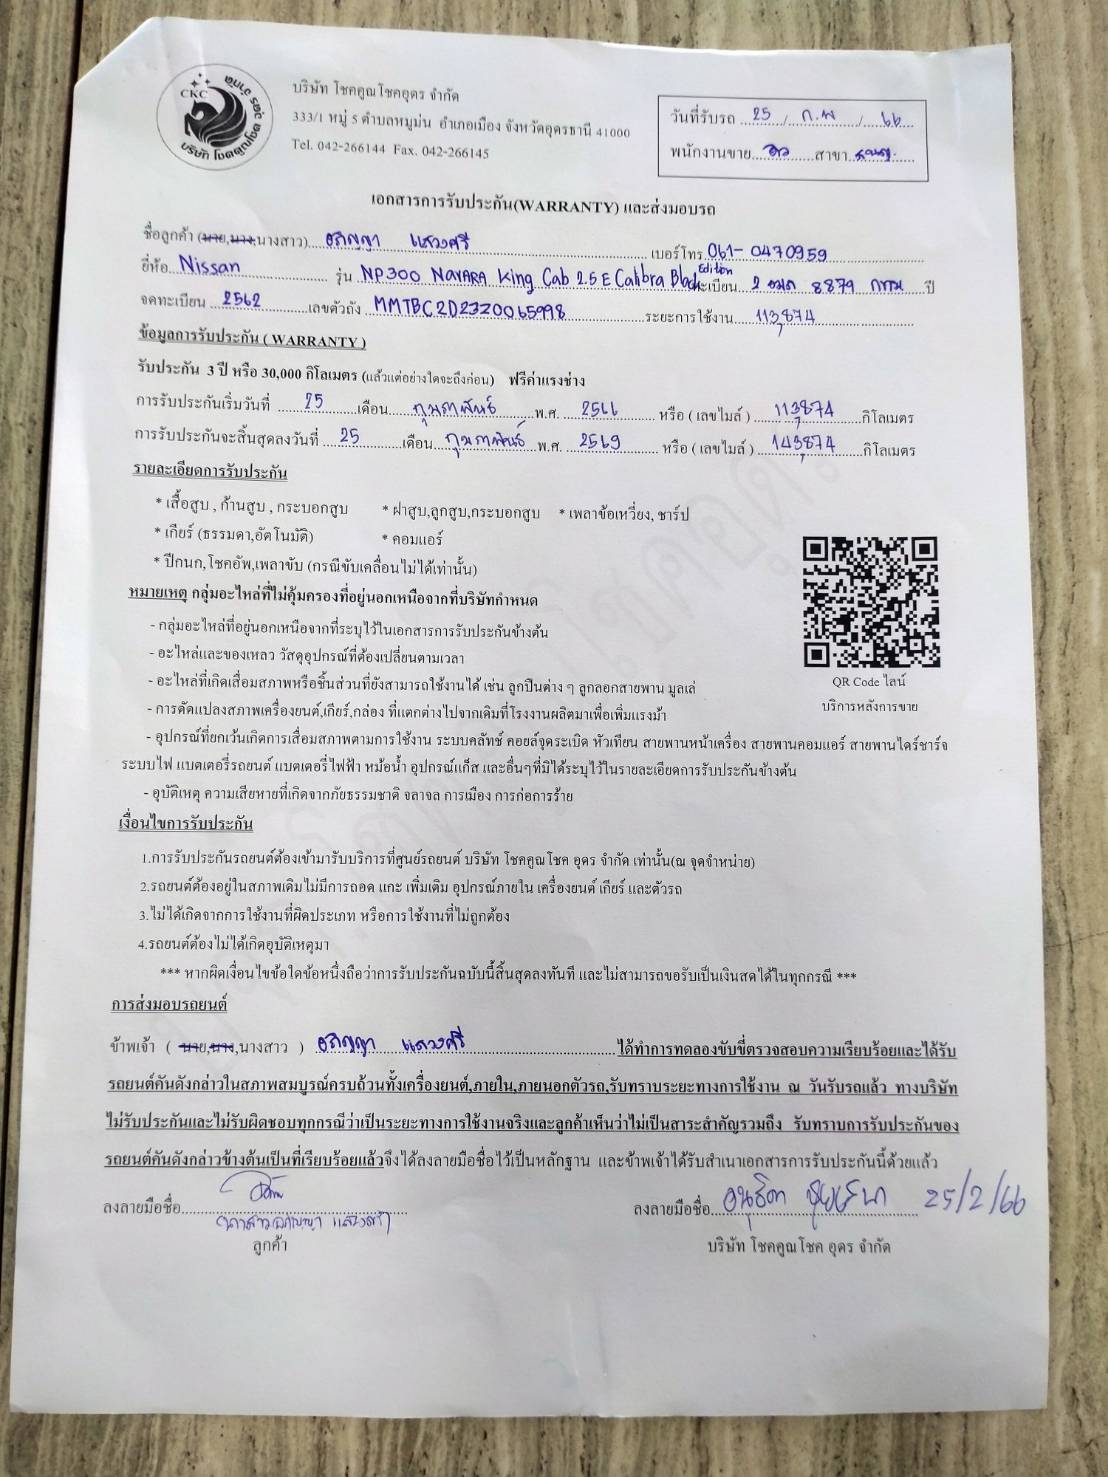 CKC
บริษัท โชคคูณโชค อุดร จำกัด
บริษัท โชคคูณโชคอุดร จำกัด
333/1 หมู่ 5 ตำบลหมูม่น อำเภอเมือง จังหวัดอุดรธานี 41000
Tel. 042-266144 Fax. 042-266145
วันที่รับรถ 25 / ก.พ / 66
พนักงานขาย สาขา
เอกสารการรับประกัน(WARRANTY) และส่งมอบรถ
ชื่อลูกค้า (นาย,นาง,นางสาว) อภิญญา แสวงศรี เบอร์โทร 061-0470959
ยี่ห้อ Nissan รุ่น NP300 NAVARA King Cab 2.5 E Calibra Black Edition ทะเบียน 2 ฒภ 8879 กทม ปี
จดทะเบียน 2562 เลขตัวถัง MMTBC2D23Z0065998 ระยะการใช้งาน 113,874
ข้อมูลการรับประกัน ( WARRANTY )
รับประกัน 3 ปี หรือ 30,000 กิโลเมตร (แล้วแต่อย่างใดจะถึงก่อน) ฟรีค่าแรงช่าง
การรับประกันเริ่มวันที่ 25 เดือน กุมภาพันธ์ พ.ศ. 2566 หรือ ( เลขไมล์ ) 113,874 กิโลเมตร
การรับประกันจะสิ้นสุดลงวันที่ 25 เดือน กุมภาพันธ์ พ.ศ. 2569 หรือ ( เลขไมล์ ) 143,874 กิโลเมตร
รายละเอียดการรับประกัน
* เสื้อสูบ , ก้านสูบ , กระบอกสูบ * ฝาสูบ,ลูกสูบ,กระบอกสูบ * เพลาข้อเหวี่ยง, ชาร์ป
* เกียร์ (ธรรมดา,อัตโนมัติ) * คอมแอร์
* ปีกนก,โชคอัพ,เพลาขับ (กรณีขับเคลื่อนไม่ได้เท่านั้น)
หมายเหตุ กลุ่มอะไหล่ที่ไม่คุ้มครองที่อยู่นอกเหนือจากที่บริษัทกำหนด
- กลุ่มอะไหล่ที่อยู่นอกเหนือจากที่ระบุไว้ในเอกสารการรับประกันข้างต้น
- อะไหล่และของเหลว วัสดุอุปกรณ์ที่ต้องเปลี่ยนตามเวลา
- อะไหล่ที่เกิดเสื่อมสภาพหรือชิ้นส่วนที่ยังสามารถใช้งานได้ เช่น ลูกปืนต่าง ๆ ลูกลอกสายพาน มูลเล่
- การดัดแปลงสภาพเครื่องยนต์,เกียร์,กล่อง ที่แตกต่างไปจากเดิมที่โรงงานผลิตมาเพื่อเพิ่มแรงม้า
QR Code ไลน์
บริการหลังการขาย
- อุปกรณ์ที่ยกเว้นเกิดการเสื่อมสภาพตามการใช้งาน ระบบคลัทช์ คอยล์จุดระเบิด หัวเทียน สายพานหน้าเครื่อง สายพานคอมแอร์ สายพานไดร์ชาร์จ
ระบบไฟ แบตเตอรี่รถยนต์ แบตเตอรี่ไฟฟ้า หม้อน้ำ อุปกรณ์แก็ส และอื่นๆที่มิได้ระบุไว้ในรายละเอียดการรับประกันข้างต้น
- อุบัติเหตุ ความเสียหายที่เกิดจากภัยธรรมชาติ จลาจล การเมือง การก่อการร้าย
เงื่อนไขการรับประกัน
1.การรับประกันรถยนต์ต้องเข้ามารับบริการที่ศูนย์รถยนต์ บริษัท โชคคูณโชค อุดร จำกัด เท่านั้น(ณ จุดจำหน่าย)
2.รถยนต์ต้องอยู่ในสภาพเดิมไม่มีการถอด แกะ เพิ่มเติม อุปกรณ์ภายใน เครื่องยนต์ เกียร์ และตัวรถ
3.ไม่ได้เกิดจากการใช้งานที่ผิดประเภท หรือการใช้งานที่ไม่ถูกต้อง
4.รถยนต์ต้องไม่ได้เกิดอุบัติเหตุมา
*** หากผิดเงื่อนไขข้อใดข้อหนึ่งถือว่าการรับประกันฉบับนี้สิ้นสุดลงทันที และไม่สามารถขอรับเป็นเงินสดได้ในทุกกรณี ***
การส่งมอบรถยนต์
ข้าพเจ้า ( นาย,นาง,นางสาว ) อภิญญา แสวงศรี ได้ทำการทดลองขับขี่ตรวจสอบความเรียบร้อยและได้รับ
รถยนต์คันดังกล่าวในสภาพสมบูรณ์ครบถ้วนทั้งเครื่องยนต์,ภายใน,ภายนอกตัวรถ,รับทราบระยะทางการใช้งาน ณ วันรับรถแล้ว ทางบริษัท
ไม่รับประกันและไม่รับผิดชอบทุกกรณีว่าเป็นระยะทางการใช้งานจริงและลูกค้าเห็นว่าไม่เป็นสาระสำคัญรวมถึง รับทราบการรับประกันของ
รถยนต์คันดังกล่าวข้างต้นเป็นที่เรียบร้อยแล้วจึงได้ลงลายมือชื่อไว้เป็นหลักฐาน และข้าพเจ้าได้รับสำเนาเอกสารการรับประกันนี้ด้วยแล้ว
ลงลายมือชื่อ ลงลายมือชื่อ 25/2/66
(นางสาวอภิญญา แสวงศรี)
ลูกค้า บริษัท โชคคูณโชค อุดร จำกัด